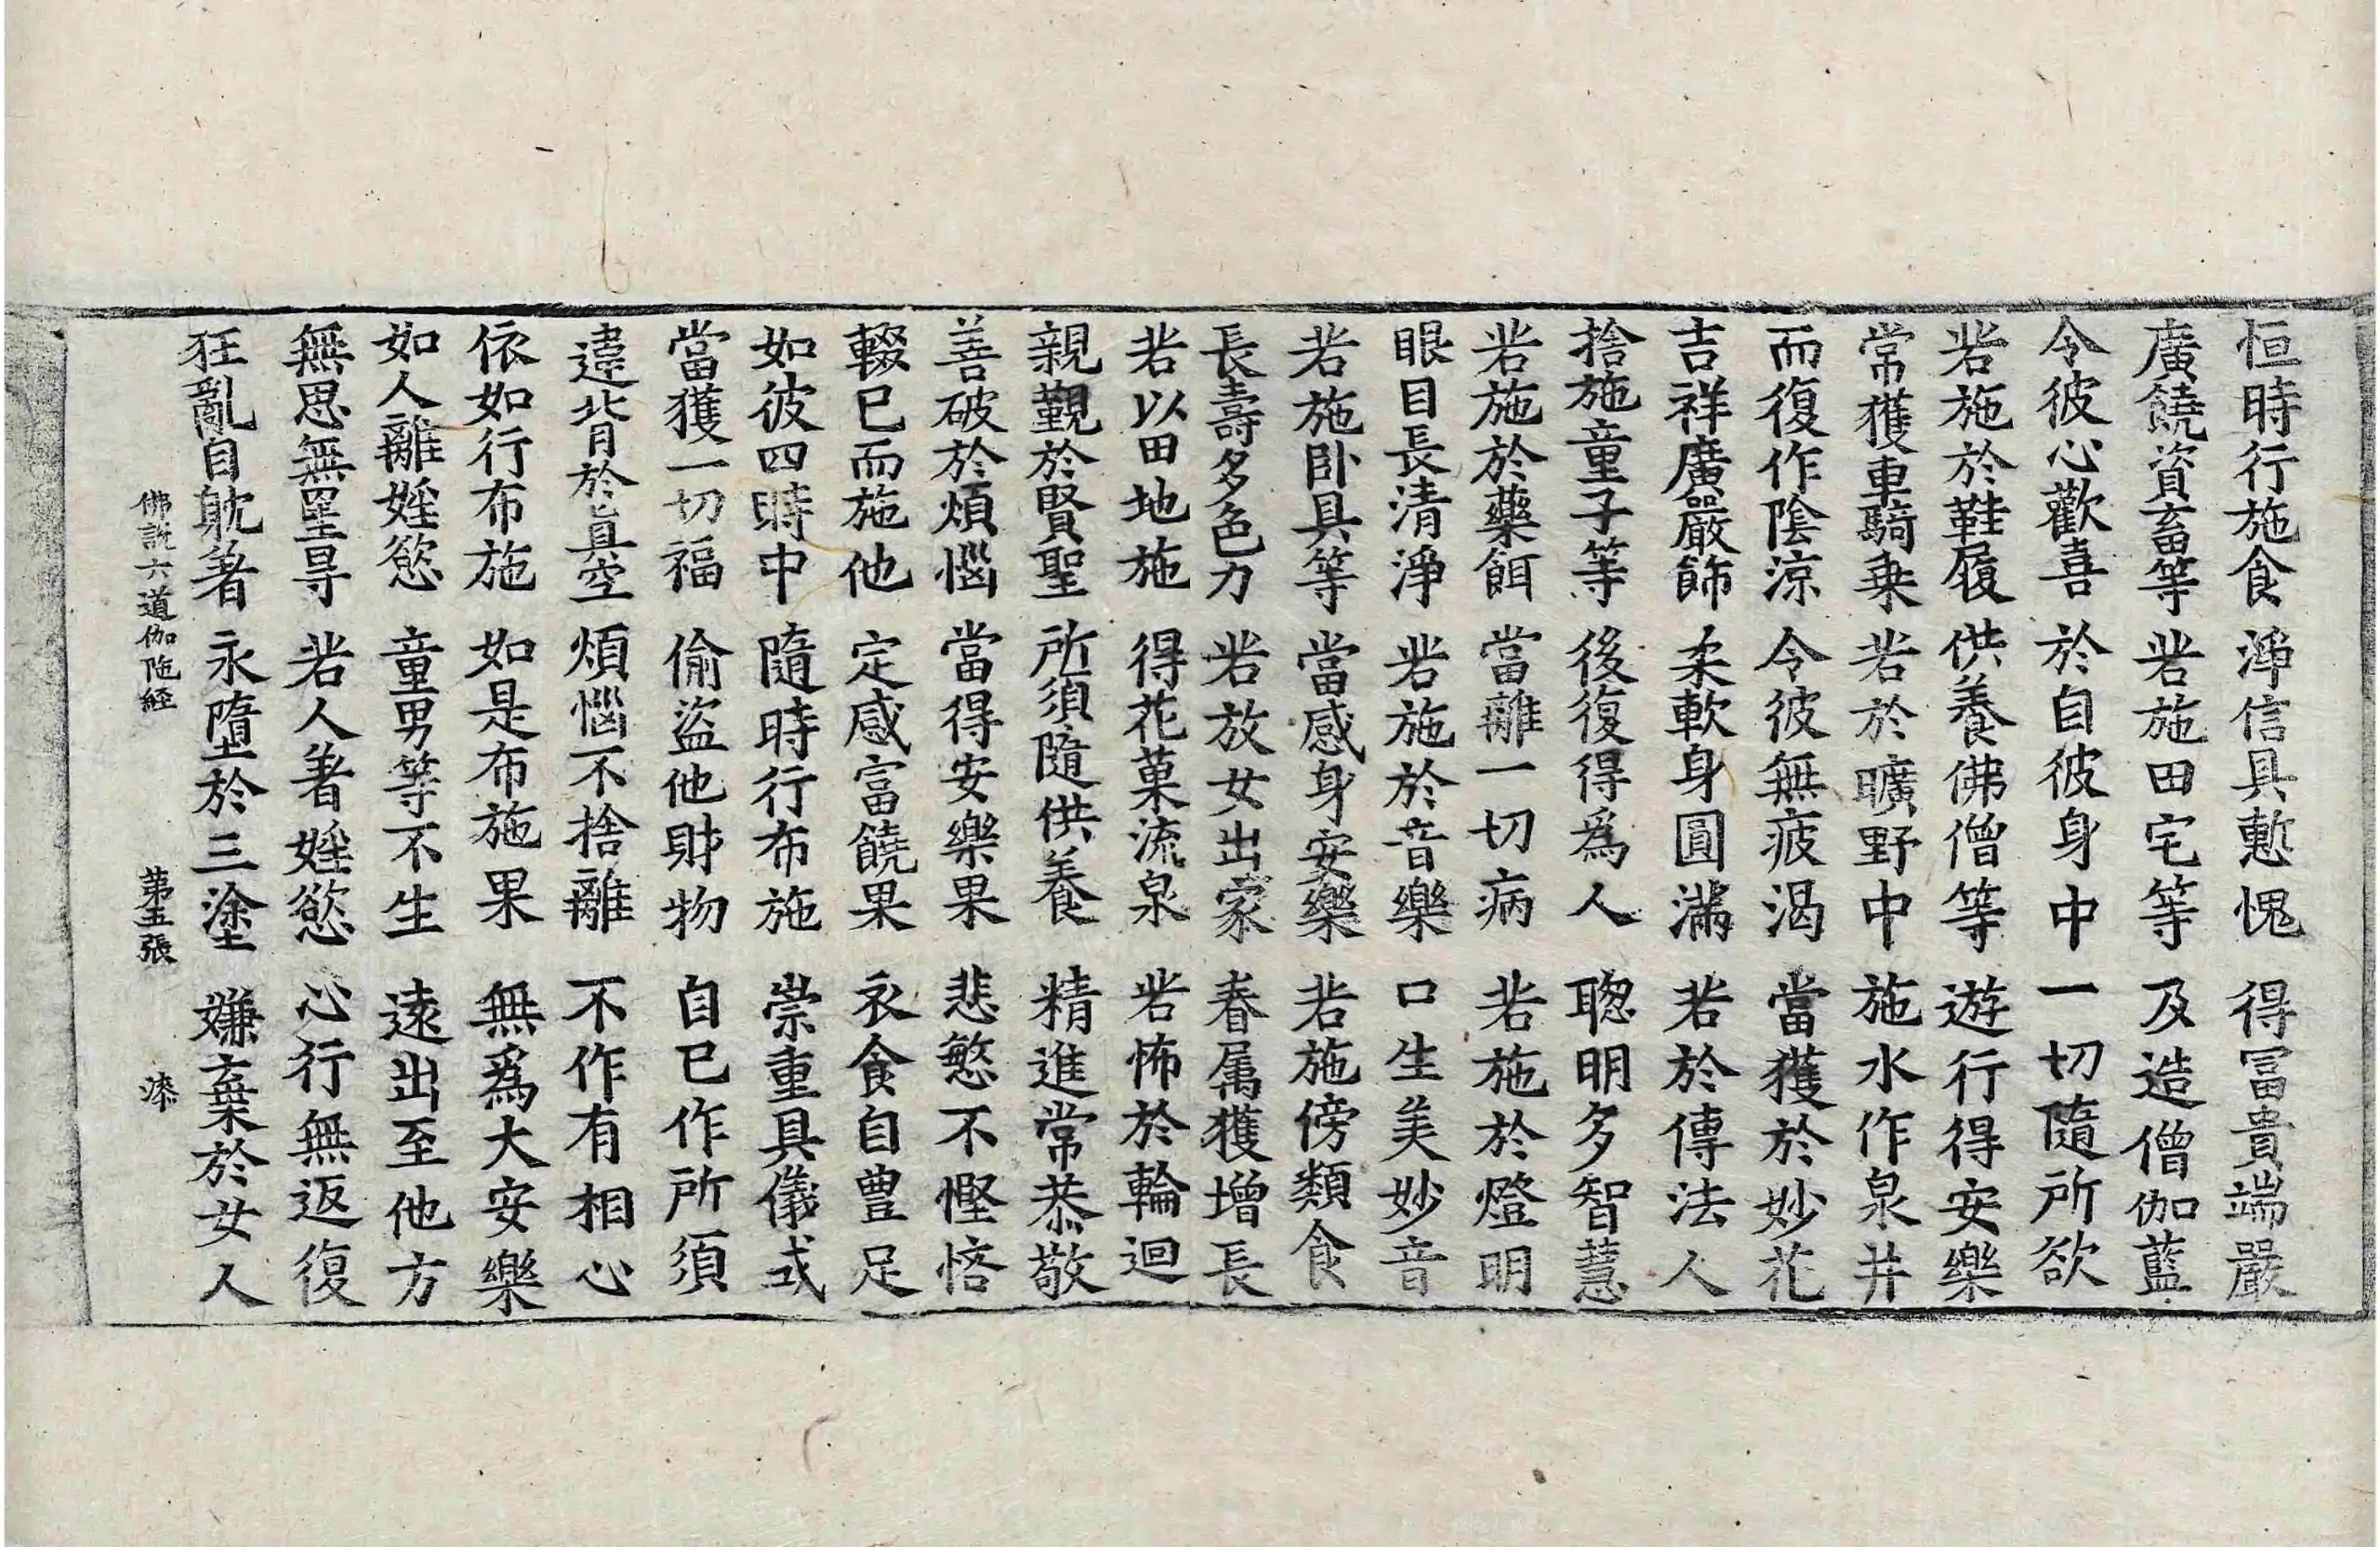 恒時行施食 淨信具慙愧 得冨貴端嚴
廣饒資畜等 若施田宅等 及造僧伽藍
令彼心歡喜 於自彼身中 一切隨所欲
若施於鞋履 供養佛僧等 遊行得安樂
常獲車騎乗 若於曠野中 施水作泉井
而復作陰涼 令彼無疲渴 當獲於妙花
吉祥廣嚴飾 柔軟身圓滿 若於傳法人
捨施童子等 後復得爲人 聦明多智慧
若施於藥餌 當離一切病 若施於燈明
眼目長清淨 若施於音樂 口生美妙音
若施卧具等 當感身安樂 若施傍類食
長壽多色力 若放女出家 眷属獲增長
若以田地施 得花菓流泉 若怖於輪迴
親覲於賢聖 所須隨供養 精進常恭敬
善破於煩惱 當得安樂果 悲慜不慳悋
輟已而施他 定感富饒果 衣食自豊足
如彼四時中 隨時行布施 崇重具儀式
當獲一切福 偷盜他財物 自已作所須
違背於真空 煩惱不捨離 不作有相心
依如行布施 如是布施果 無爲大安樂
如人離婬慾 童男等不生 遠出至他方
無思無罣㝵 若人著婬慾 心行無返復
狂亂自躭著 永墮於三塗 嫌棄於女人
佛說六道伽陁経 第五張 漆